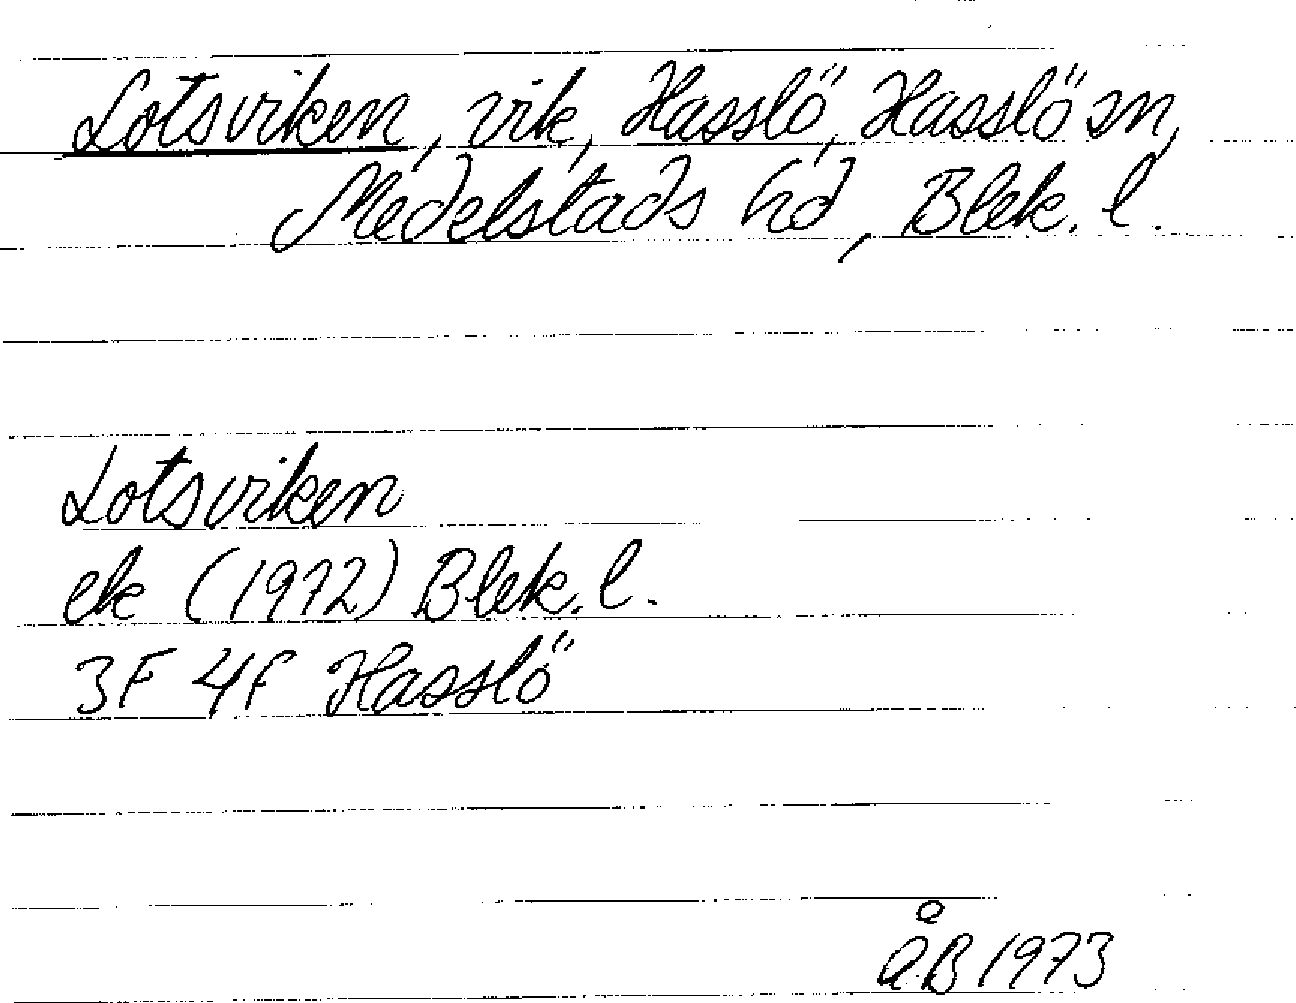 Lotsviken, vik, Hasslö, Hasslö sn,
Medelstads hd, Blek. l.
Lotsviken
ek (1972) Blek. l.
3F 4f Hasslö
ÅB 1973